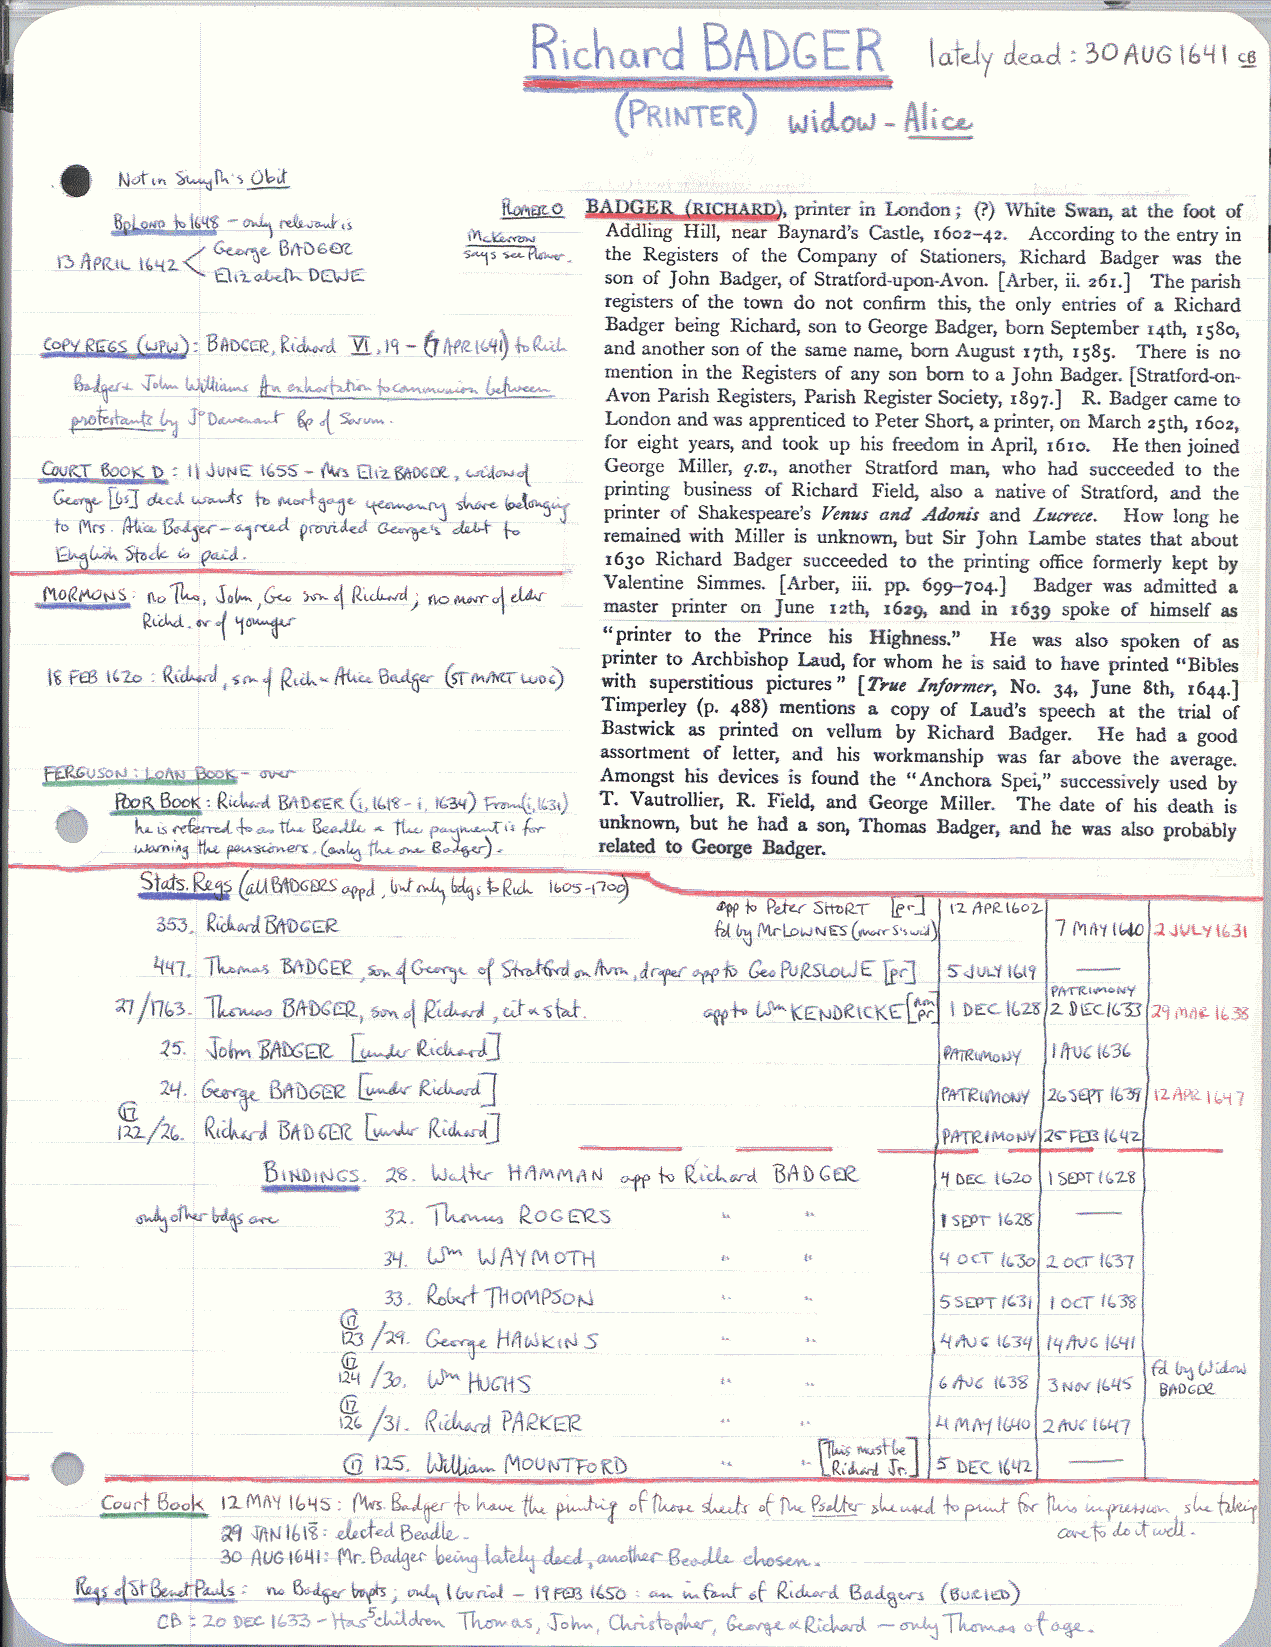 Richard BADGER lately dead : 30 AUG 1641 CB
(PRINTER) widow - Alice
Not in Smyth's Obit
BpLond to 1648 - only relevant is
13 APRIL 1642 < George BADGER
Elizabeth DEWE
PLOMER O
McKerrow
says see Plomer.
BADGER (RICHARD), printer in London; (?) White Swan, at the foot of
Addling Hill, near Baynard's Castle, 1602-42. According to the entry in
the Registers of the Company of Stationers, Richard Badger was the
son of John Badger, of Stratford-upon-Avon. [Arber, ii. 261.] The parish
registers of the town do not confirm this, the only entries of a Richard
Badger being Richard, son to George Badger, born September 14th, 1580,
and another son of the same name, born August 17th, 1585. There is no
mention in the Registers of any son born to a John Badger. [Stratford-on-
Avon Parish Registers, Parish Register Society, 1897.] R. Badger came to
London and was apprenticed to Peter Short, a printer, on March 25th, 1602,
for eight years, and took up his freedom in April, 1610. He then joined
George Miller, q.v., another Stratford man, who had succeeded to the
printing business of Richard Field, also a native of Stratford, and the
printer of Shakespeare's Venus and Adonis and Lucrece. How long he
remained with Miller is unknown, but Sir John Lambe states that about
1630 Richard Badger succeeded to the printing office formerly kept by
Valentine Simmes. [Arber, iii. pp. 699-704.] Badger was admitted a
master printer on June 12th, 1629, and in 1639 spoke of himself as
"printer to the Prince his Highness." He was also spoken of as
printer to Archbishop Laud, for whom he is said to have printed "Bibles
with superstitious pictures" [True Informer, No. 34, June 8th, 1644.]
Timperley (p. 488) mentions a copy of Laud's speech at the trial of
Bastwick as printed on vellum by Richard Badger. He had a good
assortment of letter, and his workmanship was far above the average.
Amongst his devices is found the "Anchora Spei," successively used by
T. Vautrollier, R. Field, and George Miller. The date of his death is
unknown, but he had a son, Thomas Badger, and he was also probably
related to George Badger.
COPY REGS (WPW) : BADGER, Richard VI, 19 - (7 APR 1641) to Rich
Badger & John Williams An exhortation to communion between
protestants by Jo Davenant Bp of Sarum.
COURT BOOK D : 11 JUNE 1655 - Mrs Eliz BADGER, widow of
George [bs] decd wants to mortgage yeomanry share belonging
to Mrs. Alice Badger - agreed provided George's debt to
English Stock is paid.
MORMONS : no Tho, John, Geo son of Richard; no marr of elder
Richd. or of younger
18 FEB 1620 : Richard, son of Rich & Alice Badger (ST MART LUDG)
FERGUSON : LOAN BOOK - over
POOR BOOK : Richard BADGER (i, 1618 - i, 1634) From (i, 1631)
he is referred to as the Beadle & the payment is for
warning the pensioners. (only the one Badger).
Stats. Regs (all BADGERS appd, but only bdgs to Rich 1605-1700)
353. Richard BADGER app to Peter SHORT [pr] 12 APR 1602
fd by Mr LOWNES (marr S's wid) 7 MAY 1610 2 JULY 1631
447. Thomas BADGER, son of George of Stratford on Avon, draper app to Geo PURSLOWE [pr] 5 JULY 1619 —
27/1763. Thomas BADGER, son of Richard, cit & stat. app to Wm KENDRICKE [non pr] 1 DEC 1628 PATRIMONY 2 DEC 1633 29 MAR 1638
25. John BADGER [under Richard] PATRIMONY 1 AUG 1636
24. George BADGER [under Richard] PATRIMONY 26 SEPT 1639 12 APR 1647
(17) 122/26. Richard BADGER [under Richard] PATRIMONY 25 FEB 1642
BINDINGS. 28. Walter HAMMAN app to Richard BADGER 4 DEC 1620 1 SEPT 1628
only other bdgs are 32. Thomas ROGERS " " 1 SEPT 1628 —
34. Wm WAYMOTH " " 4 OCT 1630 2 OCT 1637
33. Robert THOMPSON " " 5 SEPT 1631 1 OCT 1638
(17) 123/29. George HAWKINS " " 4 AUG 1634 14 AUG 1641
(17) 124/30. Wm HUGHS " " 6 AUG 1638 3 NOV 1645 fd by Widow BADGER
(17) 126/31. Richard PARKER " " 4 MAY 1640 2 AUG 1647
(17) 125. William MOUNTFORD " " [This must be Richard Jr.] 5 DEC 1642 —
Court Book 12 MAY 1645 : Mrs. Badger to have the printing of those sheets of the Psalter she used to print for this impression, she taking
care to do it well.
29 JAN 1618 : elected Beadle.
30 AUG 1641 : Mr. Badger being lately decd, another Beadle chosen.
Regs of St Benet Pauls : no Badger bapts; only 1 burial - 19 FEB 1650 : an infant of Richard Badgers (BURIED)
CB : 20 DEC 1633 - Has 5 children Thomas, John, Christopher, George & Richard - only Thomas of age.